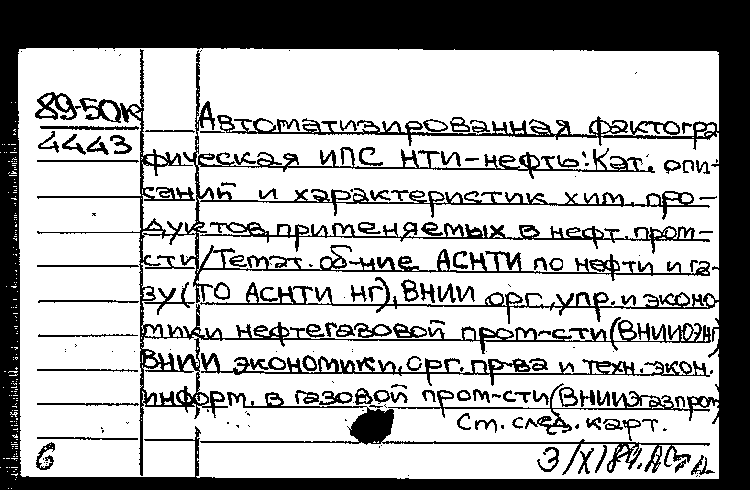 89-50к
4443
Автоматизированная фактогра
фическая ИПС НТИ-нефть: Кат. опи-
саний и характеристик хим. про-
дуктов, применяемых в нефт. пром-
сти/Темат. об-ние АСНТИ по нефти и га-
зу (ТО АСНТИ НГ), ВНИИ орг., упр. и эконо
мики нефтегазовой пром-сти (ВНИИОЭНГ)
ВНИИ экономики, орг. пр-ва и техн.-экон.
информ. в газовой пром-сти (ВНИИЭгазпром)
См. след. карт.
6
3/X189.